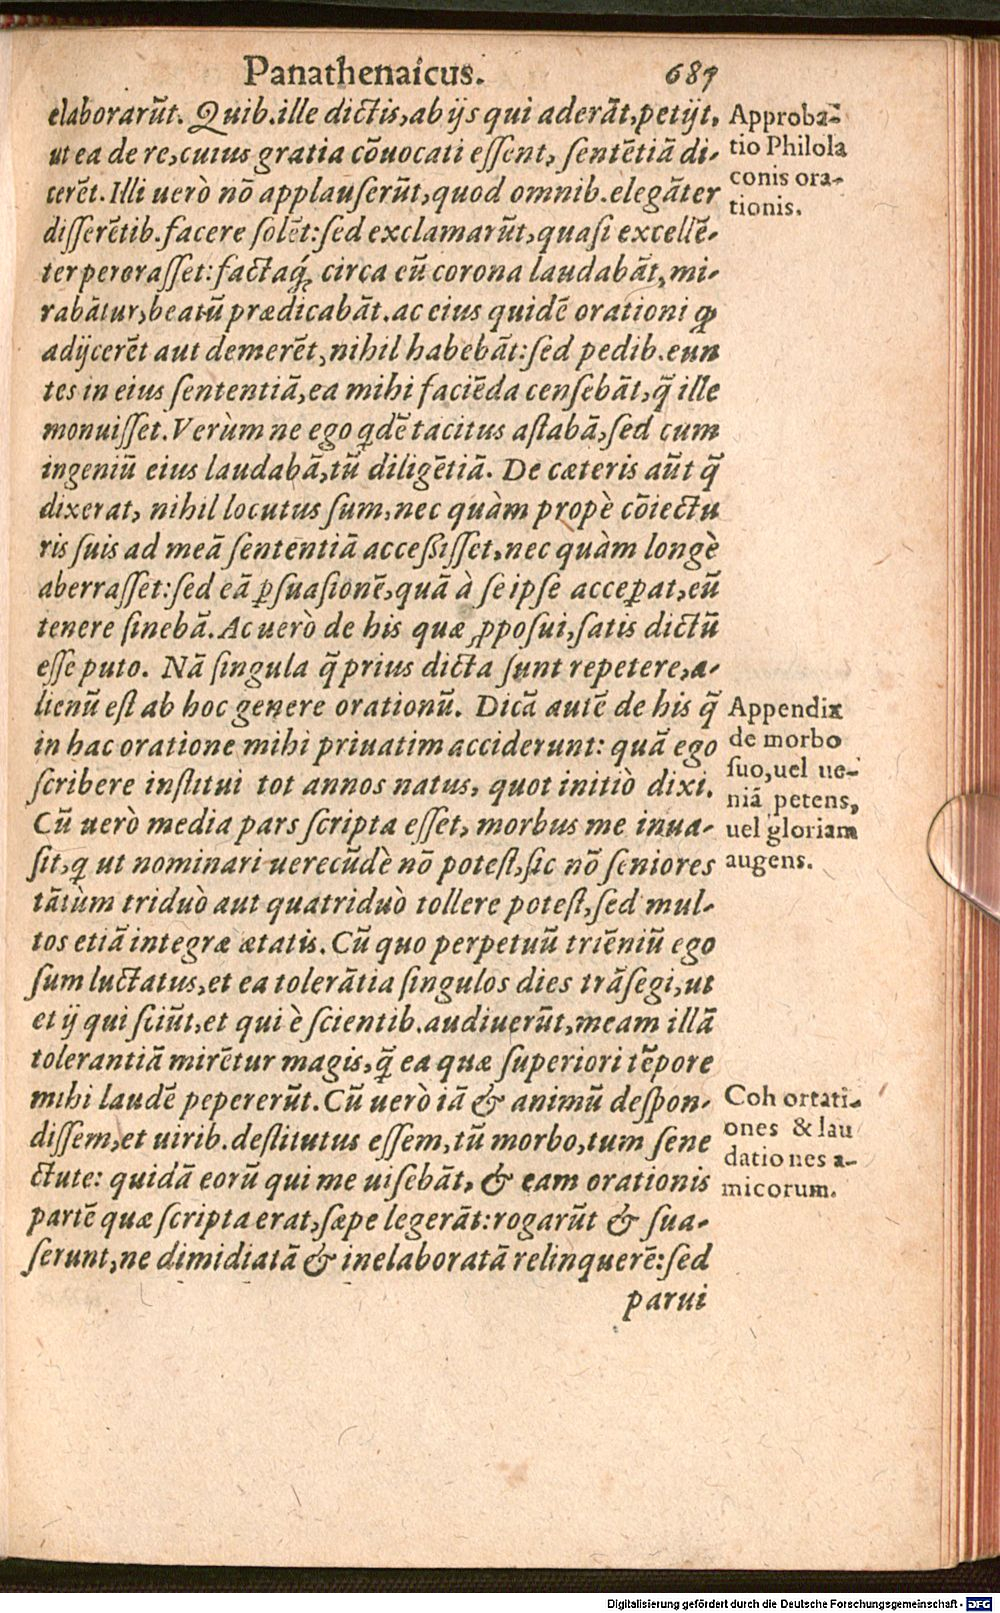 Panathenaicus. 689
elaborarūt. Quib. ille dictis, ab ijs qui aderāt, petijt,
ut ea de re, cuius gratia cōuocati essent, sentētiā di-
cerēt. Illi uerò nō applauserūt, quod omnib. elegāter
disserētib. facere solēt: sed exclamarūt, quasi excellē-
ter perorasset: factaq́; circa eū corona laudabāt, mi-
rabātur, beatū prædicabāt. ac eius quidē orationi qđ
adijcerēt aut demerēt, nihil habebāt: sed pedib. eun
tes in eius sententiā, ea mihi faciēda censebāt, q̄ ille
monuisset. Verùm ne ego qdē tacitus astabā, sed cum
ingeniū eius laudabā, tū diligētiā. De cæteris aūt q̄
dixerat, nihil locutus sum, nec quàm propè cōiectu
ris suis ad meā sententiā accessisset, nec quàm longè
aberrasset: sed eā ꝑsuasionē, quā à se ipse acceꝑat, eū
tenere sinebā. Ac uerò de his quæ ꝓposui, satis dictū
esse puto. Nā singula q̄ prius dicta sunt repetere, a-
lienū est ab hoc genere orationū. Dicā autē de his q̄
in hac oratione mihi priuatim acciderunt: quā ego
scribere institui tot annos natus, quot initiò dixi.
Cū uerò media pars scripta esset, morbus me inua-
sit, q ut nominari uerecūdè nō potest, sic nō seniores
tātùm triduò aut quatriduò tollere potest, sed mul-
tos etiā integræ ætatis. Cū quo perpetuū triēniū ego
sum luctatus, et ea tolerātia singulos dies trāsegi, ut
et ij qui sciūt, et qui è scientib. audiuerūt, meam illā
tolerantiā mirētur magis, q̄ ea quæ superiori tēpore
mihi laudē pepererūt. Cū uerò iā & animū despon-
dissem, et uirib. destitutus essem, tū morbo, tum sene
ctute: quidā eorū qui me uisebāt, & eam orationis
partē quæ scripta erat, sæpe legerāt: rogarūt & sua-
serunt, ne dimidiatā & inelaboratā relinquerē: sed
parui
Approba-
tio Philola
conis ora-
tionis.
Appendix
de morbo
suo, uel ue-
niā petens,
uel gloriam
augens.
Cohortati-
ones & lau
dationes a-
micorum.
Digitalisierung gefördert durch die Deutsche Forschungsgemeinschaft - DFG